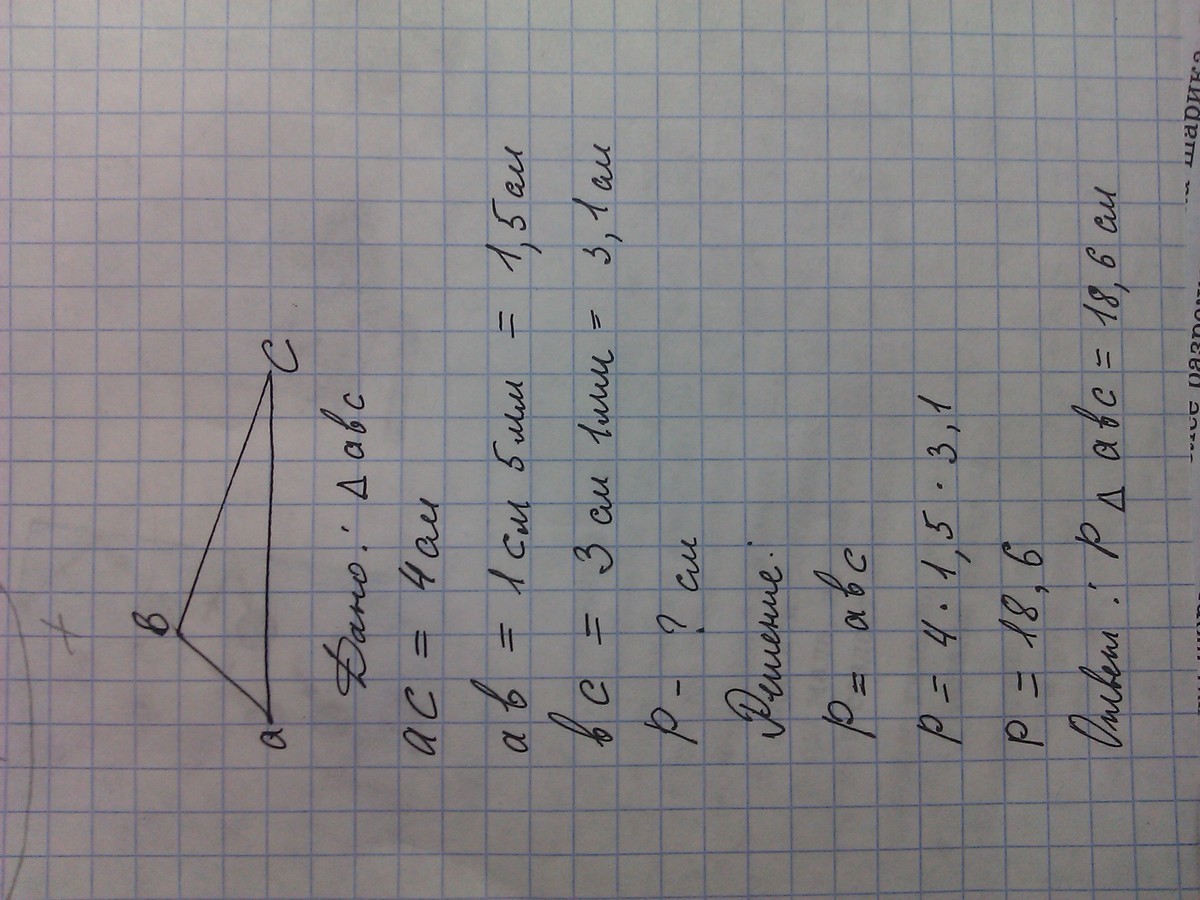 В
а
С
Дано: Δ авс
ас = 4 см
ав = 1 см 5 мм = 1,5 см
вс = 3 см 1 мм = 3,1 см
р - ? см
Решение:
р = авс
р = 4 · 1,5 · 3,1
р = 18,6
Ответ: р Δ авс = 18,6 см
шарика